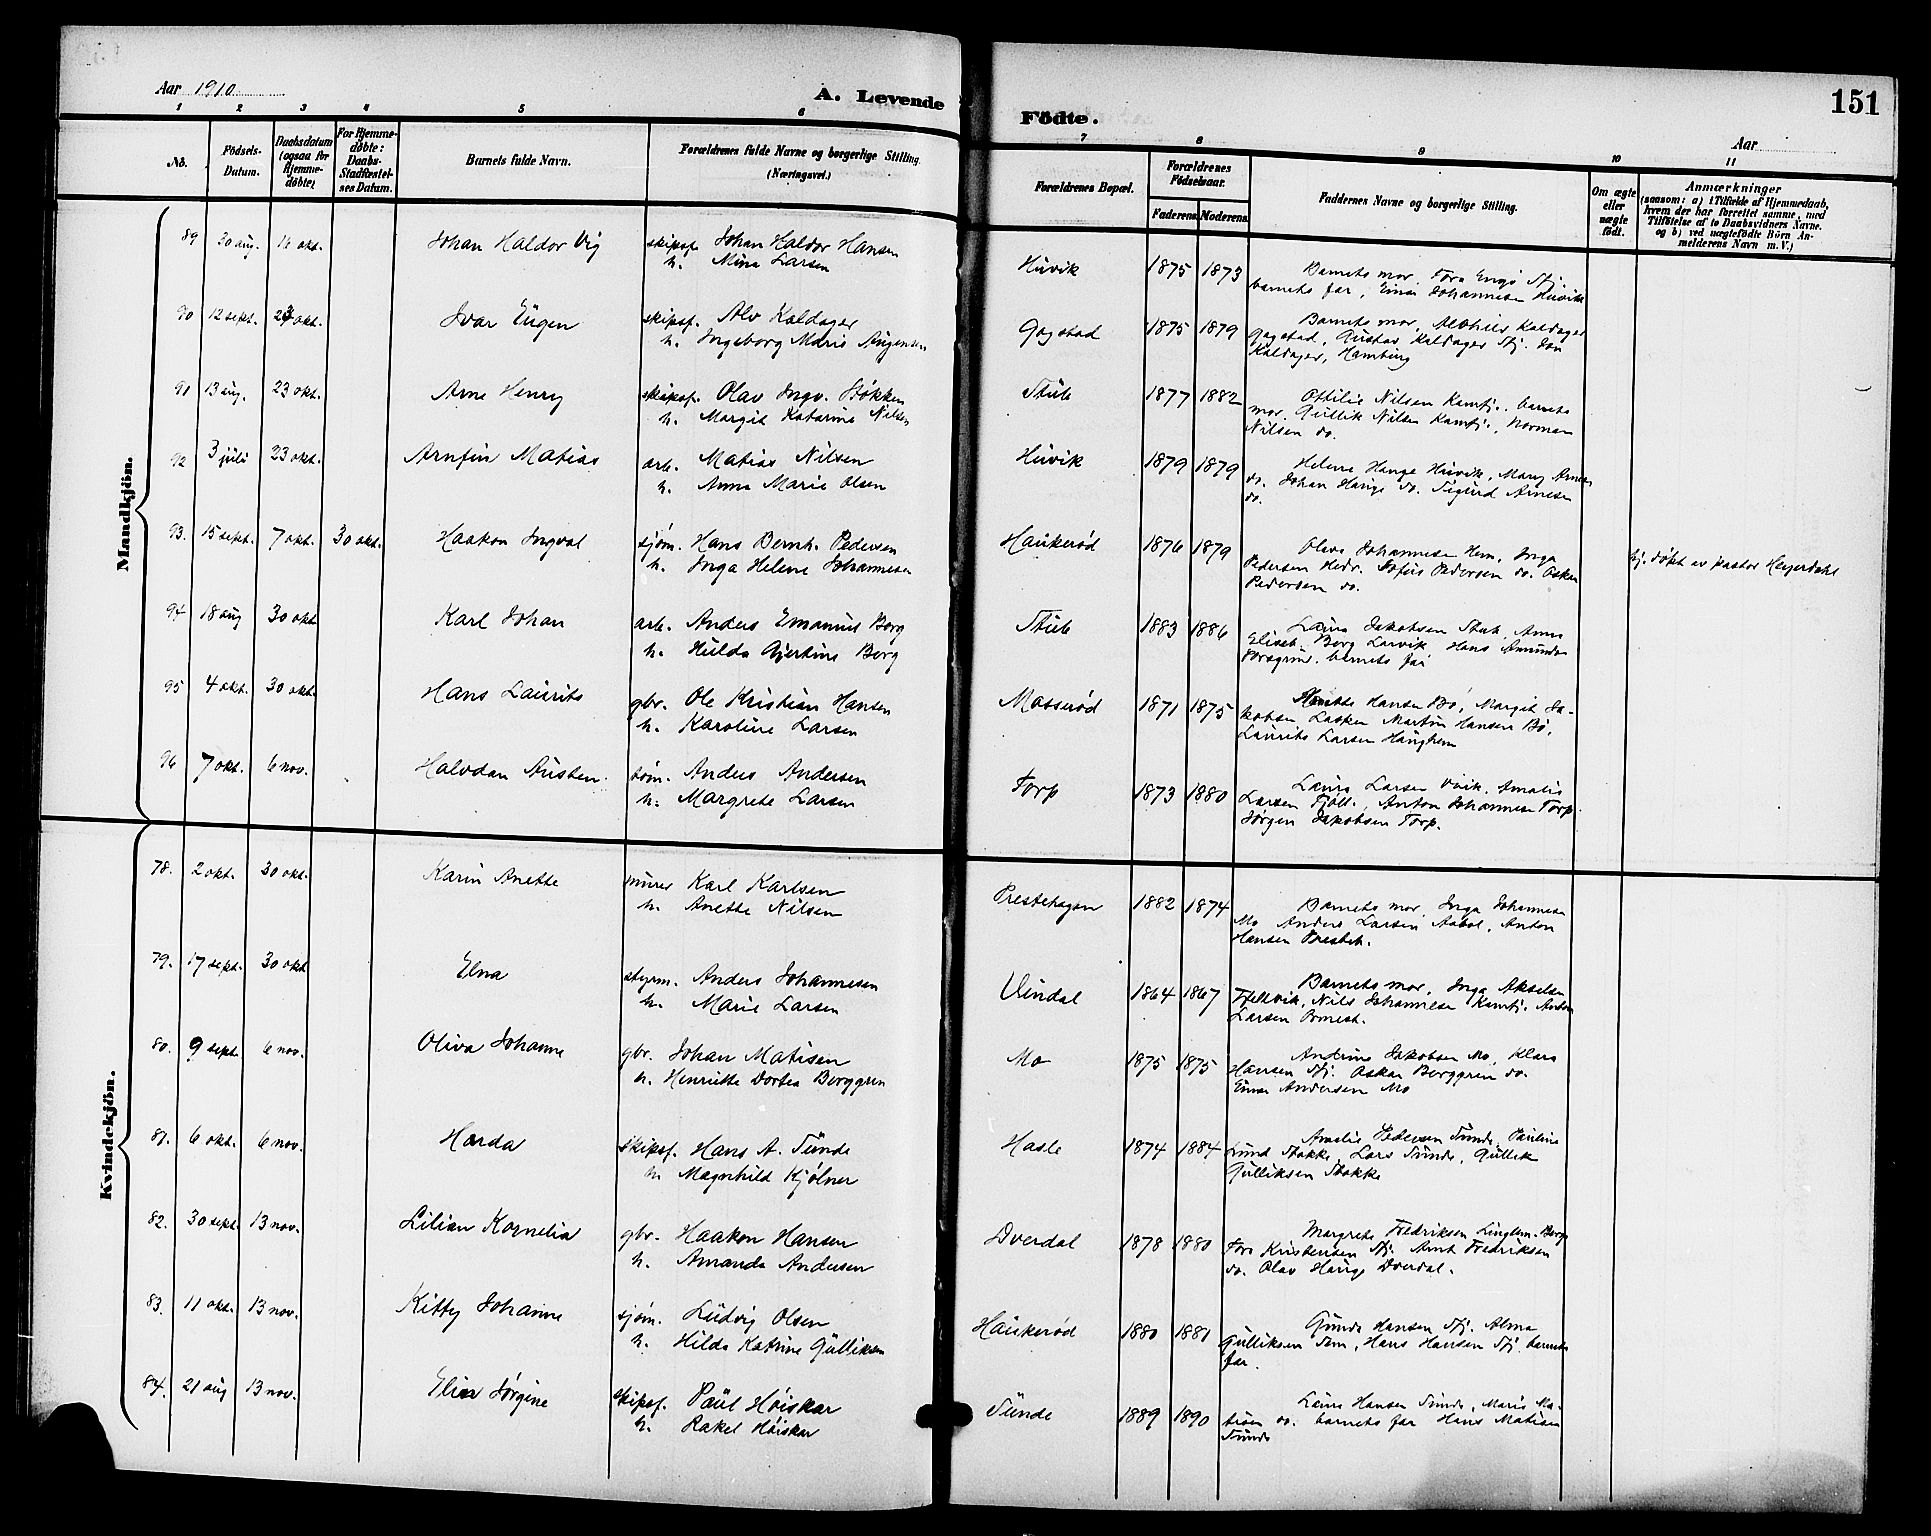 Aar 1910
A. Levende Födte.
151
Aar
1 2 3 4 5 6 7 8 9 10 11
No.
Födsels-Datum.
Daabsdatum (ogsaa for Hjemme-döbte)
For Hjemme-döbte: Daabs-Stadfæstel-ses Datum.
Barnets fulde Navn.
Forældrenes fulde Navne og borgerlige Stilling. (Næringsvei.)
Forældrenes Bopæl.
Forældrenes Födselsaar.
Faderens. Moderens.
Faddernes Navne og borgerlige Stilling.
Om ægte eller uægte födt.
Anmærkninger
(saasom: a) i Tilfælde af Hjemmedaab,
hvem der har forrettet samme, med
Tilföielse af to Daabsvidners Navne.
og b) ved uægtefödte Börn An-
melderens Navn m. V.)
Mandkjön.
89 20 aug. 16 okt. Johan Haldor Vig skipsf. Johan Haldor Hansen
h. Mina Larsen
Húvik 1875 1873 Barnets mor, Tora Engø Stj.
barnets far, Einar Johannesen Húvik
90 12 sept. 23 okt. Ivar Eúgen skipsf. Alv Kaldager
h. Ingeborg Marie Aúgensen
Gogstad 1875 1879 Barnets mor, Kaldager
Gogstad, Gústav Kaldager Stj.
Kaldager, Hamburg
91 13 aug. 23 okt. Arne Henry skipsf. Olav Ingv. Støkken
h. Margit Katarina Nilsen
Stúb 1877 1882 Ottilie Nilsen Kamfj., barnets
mor, Gúllik Nilsen Kamfj., Norman
Nilsen do.
92 3 júli 23 okt. Arnfin Matias arb. Matias Nilsen
h. Anna Marie Olsen
Húvik 1879 1879 Helene Haúge Húvik, Mary Arnesen
do. Johan Haúge do. Sigúrd Arnesen
do.
93. 15 sept. 7 okt. 30 okt. Haakon Ingval sjøm. Hans Bernh. Pedersen
h. Inga Helene Johannesen
Haúkerød 1876 1879 Olava Johannesen Hem, Inga
Pedersen Hedr. Sofús Pedersen do. Oskar
Pedersen do.
hj. døpt av pastor Heyerdahl
94 18 aug 30 okt Karl Johan arb. Anders Emanuel Berg
h. Húlda Gjertine Berg
Stúb 1883 1886 Laúra Jakobsen Stub, Anna
Elisab. Berg Larvik, Hans Amúndsen
Porsgrún. barnets far
95 4 okt. 30 okt. Hans Laúrits gbr. Ole Kristian Hansen
h. Karoline Larsen
Mosserød 1871 1875 Hansen Bø, Margit Ja-
kobsen Lasken Martin Hansen Bø,
Laúrits Larsen Haúghem
96 7 okt. 6 nov. Halvdan Aústen. tøm. Anders Andersen
h. Margrete Larsen
Torp 1873 1880 Laúra Larsen Vivik, Amalie
Larsen Fjell., Anton Johannesen Torp.
Jørgen Jakobsen Torp.
Kvindekjön.
78. 2 okt. 30 okt. Karin Anette múrer Karl Karlsen
h. Anette Nilsen
Prestehagen 1882 1874 Barnets mor, Inga Johannesen
Mo Anders Larsen Aabol, Anton
Hansen Presteh.
79. 17 sept. 30 okt Elna styrm. Anders Johannesen
h. Marie Larsen
Vindal 1864 1867 Barnets mor, Inga Akselsen
Fjellvik, Nils Johannesen Kamfj. Anton
Larsen Ormest.
80. 9 sept. 6 nov. Oliva Johanne gbr. Johan Matisen
h. Henriette Dortea Berggren
Mo 1875 1875 Andrine Jakobsen Mo, Klara
Hansen Stj. Oskar Berggren do.
Einar Andersen Mo
81. 6 okt. 6 nov. Harda skipsf. Hans A. Súnde
h. Magnhild Kjølner
Hasle 1874 1884 Amalie Pedersen Súnde, Paúline
Lúnd Stokke, Lars Súnde, Gúllik
Gúlliksen Stokke
82. 30 sept 13 nov. Lilian Kornelia gbr. Haakon Hansen
h. Amanda Andersen
Dverdal 1878 1880 Margrete Fredriksen Linghem-Berg,
Tora Kristensen Stj. Arnt Fredriksen
do. Olav Haúge Dverdal.
83. 11 okt. 13 nov. Kitty Johanne sjøm. Lúdvig Olsen
h. Hilda Katrine Gúlliksen
Haúkerød 1880 1881 Gúnda Hansen Stj. Alma
Gúlliksen Sem, Hans Hansen Stj. barnets
far.
84. 21 aug 13 nov. Elin Jørgine skipsf. Paúl Høiskar
h. Rakel Høiskar
Súnde 1889 1890 Laúra Hansen Súnde, Marie Ma-
tisen do. barnets far Hans Matisen
Súnde